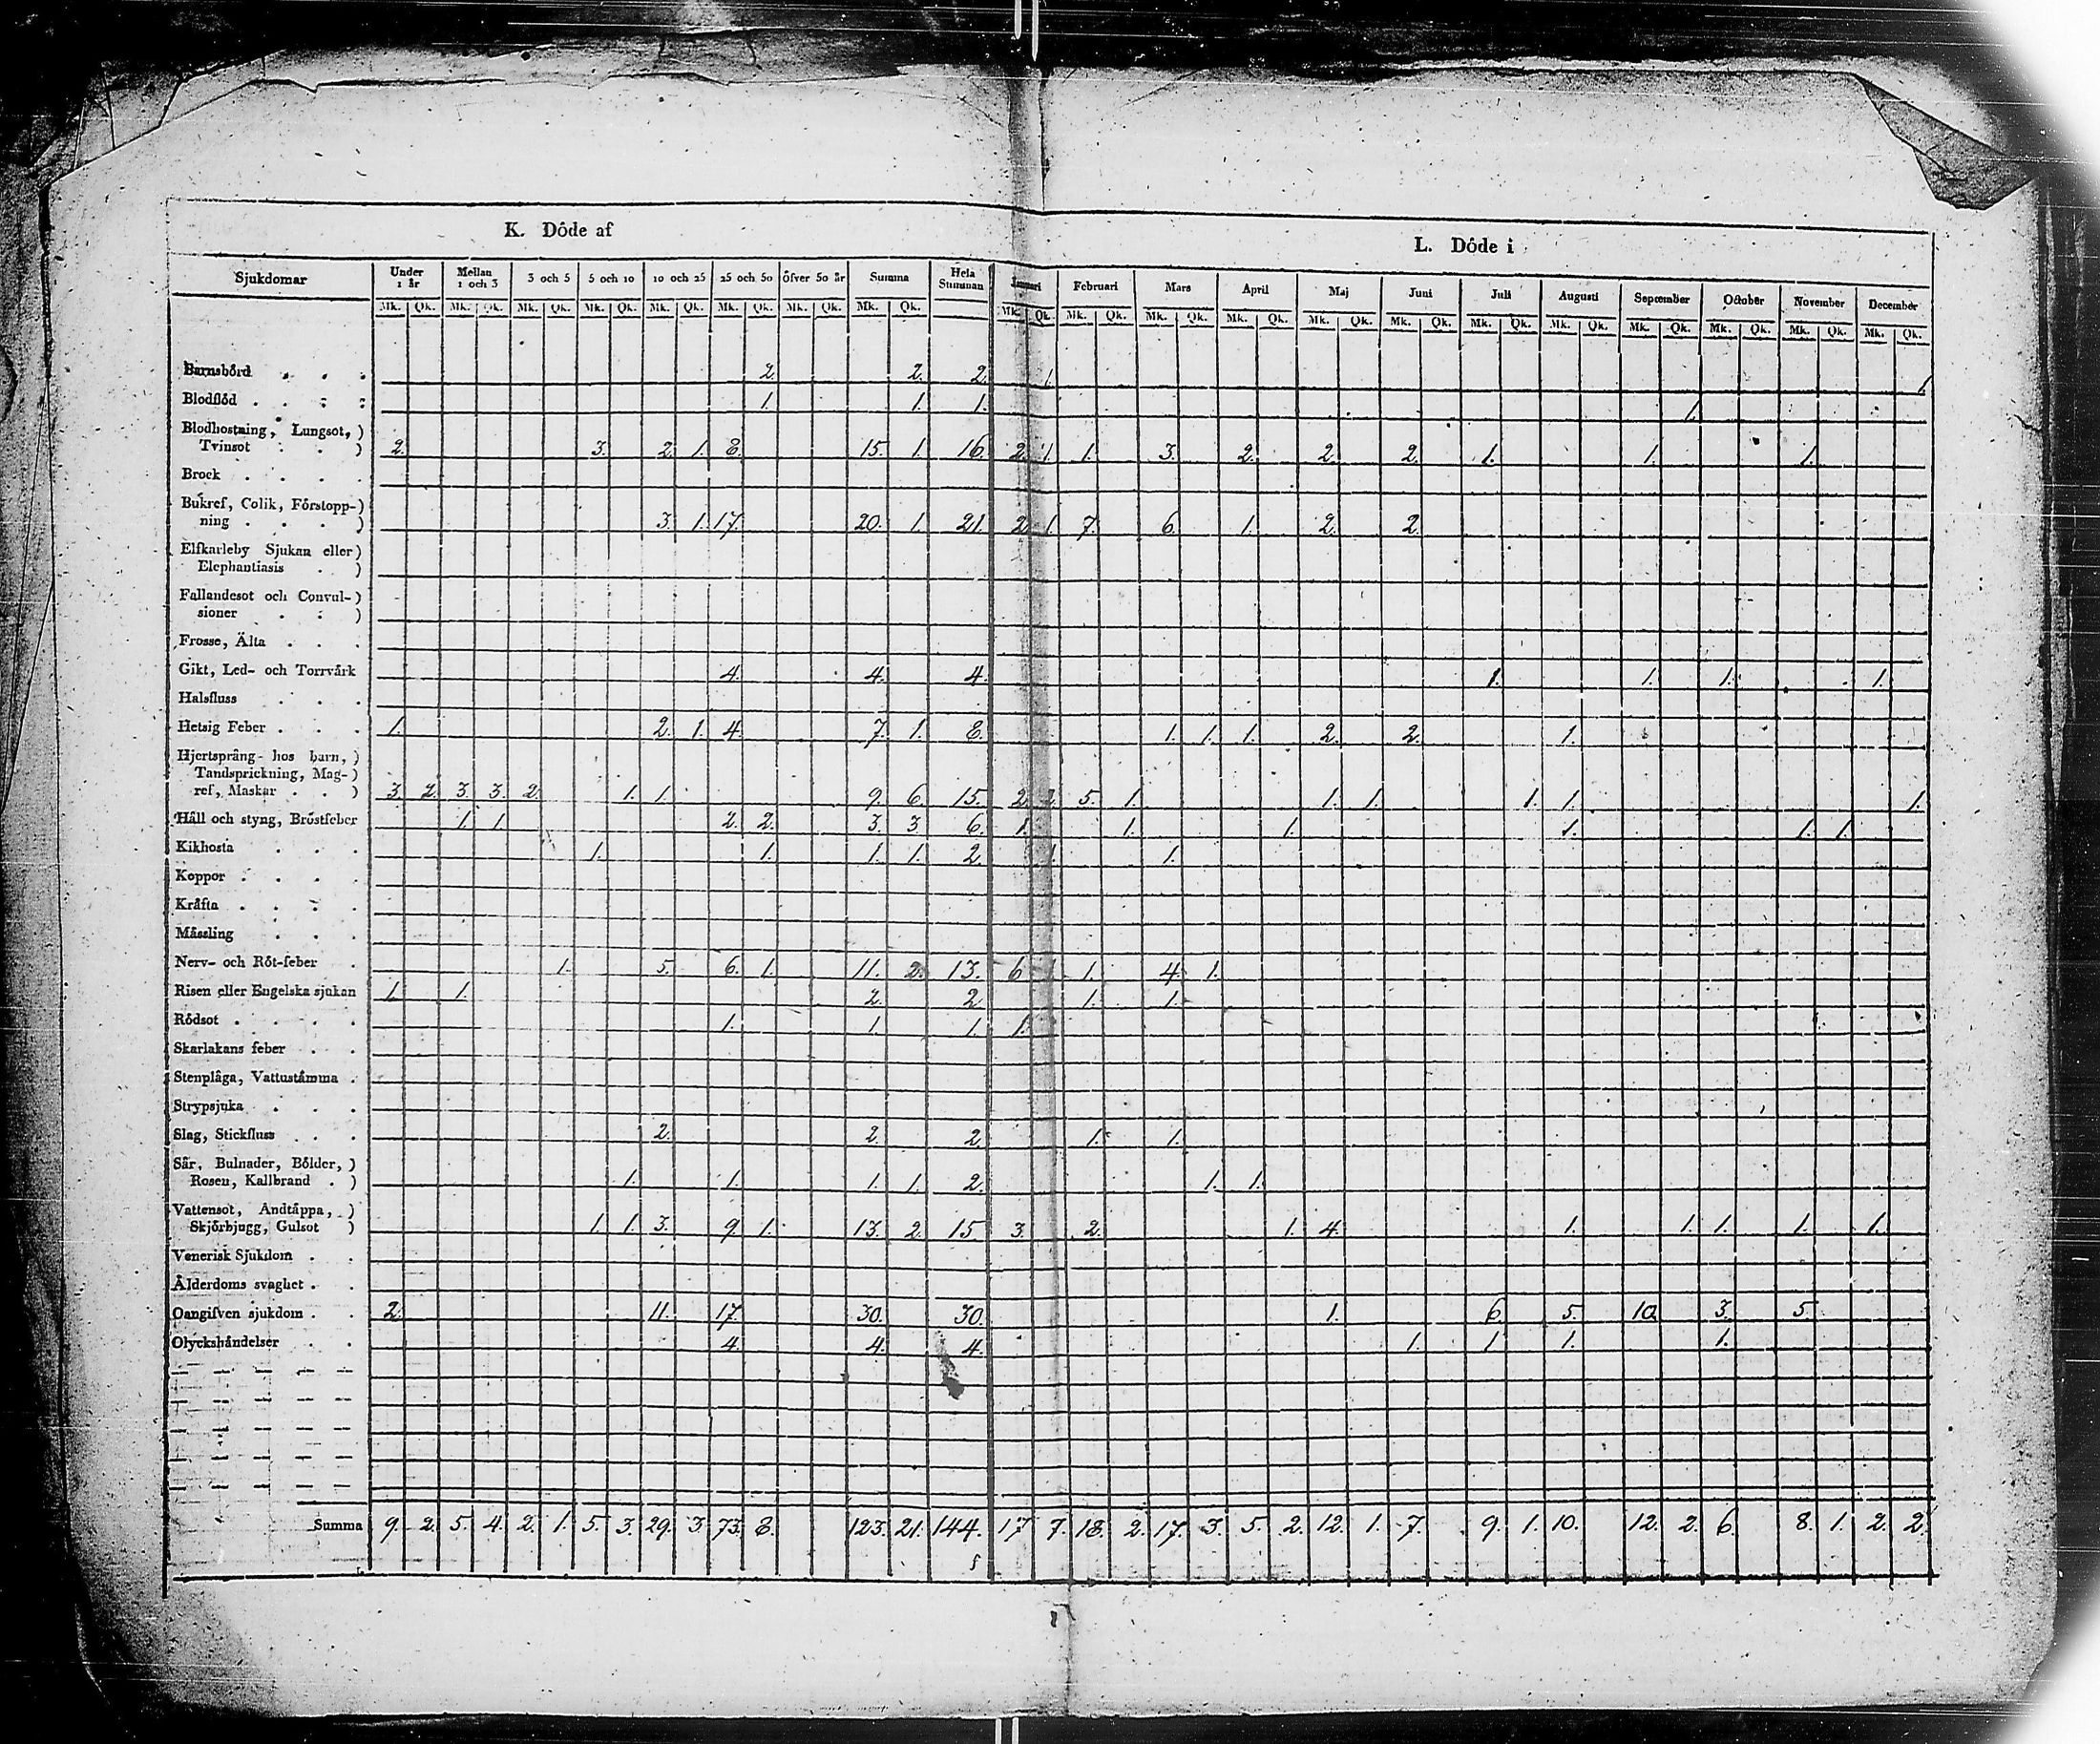 K. Dôde af
L. Dôde i
Sjukdomar Under 1 år Mellan 1 och 3 3 och 5 5 och 10 10 och 25 25 och 50 Öfver 50 år Summa Hela Summan Januari Februari Mars April Maj Juni Juli Augusti September October November December
Mk. Qk. Mk. Qk. Mk. Qk. Mk. Qk. Mk. Qk. Mk. Qk. Mk. Qk. Mk. Qk. Mk. Qk. Mk. Qk. Mk. Qk. Mk. Qk. Mk. Qk. Mk. Qk. Mk. Qk. Mk. Qk. Mk. Qk. Mk. Qk. Mk. Qk. Mk. Qk.
Barnsbörd . . . 2. 2. 2. 1. 1.
Blodflöd . . . . 1. 1. 1. 1.
Blodhostning, Lungsot, )
Tvinsot . . ) 2. 3. 2. 1. 8. 15. 1. 16. 2. 1. 1. 3. 2. 2. 2. 1. 1. 1.
Brock . . . .
Bukref, Colik, Förstopp-)
ning . . . ) 3. 1. 17. 20. 1. 21. 2. 1. 7. 6. 1. 2. 2.
Elfkarleby Sjukan eller)
Elephantiasis . )
Fallandesot och Convul-)
sioner . . )
Frosse, Älta . . .
Gikt, Led- och Torrvärk 4. 4. 4. 1. 1. 1. 1.
Halsfluss . . .
Hetsig Feber . . . 1. 2. 1. 4. 7. 1. 8. 1. 1. 1. 2. 2. 1.
Hjertsprång hos barn, )
Tandsprickning, Mag-)
ref, Maskar . . ) 3. 2. 3. 3. 2. 1. 1. 9. 6. 15. 2. 2. 5. 1. 1. 1. 1. 1. 1.
Håll och styng, Bröstfeber 1. 1. 2. 2. 3. 3. 6. 1. 1. 1. 1. 1. 1.
Kikhosta . . . 1. 1. 1. 1. 2. 1. 1.
Koppor . . . .
Kräfta . . . .
Mässling . . .
Nerv- och Röt-feber . 1. 5. 6. 1. 11. 2. 13. 6. 1. 1. 4. 1.
Risen eller Engelska sjukan 1. 1. 2. 2. 1. 1.
Rödsot . . . . 1. 1. 1. 1.
Skarlakans feber . .
Stenplåga, Vattustämma .
Strypsjuka . . .
Slag, Stickfluss . . . 2. 2. 2. 1. 1.
Sår, Bulnader, Bölder, )
Rosen, Kallbrand . ) 1. 1. 1. 1. 2. 1. 1.
Vattensot, Andtäppa, )
Skjörbjugg, Gulsot ) 1. 1. 3. 9. 1. 13. 2. 15. 3. 2. 1. 4. 1. 1. 1. 1. 1.
Venerisk Sjukdom . .
Ålderdoms svaghet . .
Oangifven sjukdom . . 2. 11. 17. 30. 30. 1. 6. 5. 10. 3. 5.
Olyckshändelser . . 4. 4. 4. 1. 1. 1. 1.
Summa 9. 2. 5. 4. 2. 1. 5. 3. 29. 3. 73. 8. 123. 21. 144. 17. 7. 18. 2. 17. 3. 5. 2. 12. 1. 7. 9. 1. 10. 12. 2. 6. 8. 1. 2. 2.